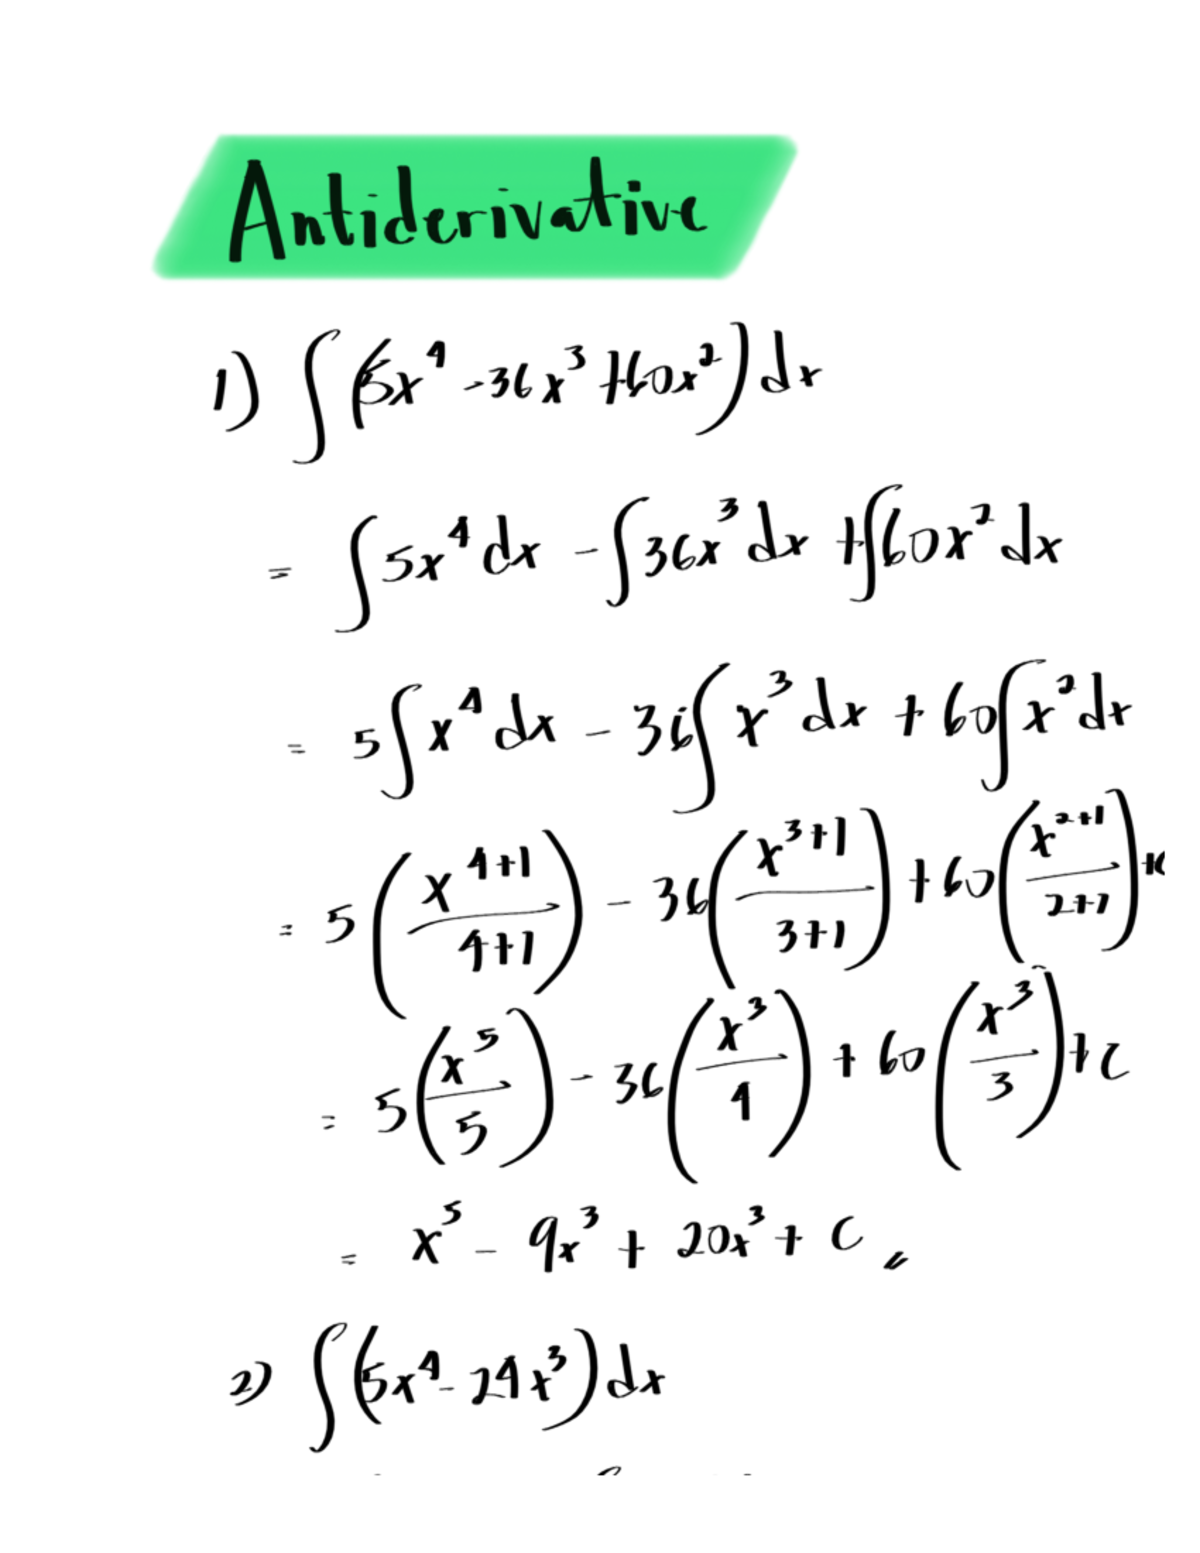 Antiderivative
1) ∫(5x⁴ - 36x³ + 60x²) dx
= ∫5x⁴ dx - ∫36x³ dx + ∫60x² dx
= 5∫x⁴ dx - 36∫x³ dx + 60∫x² dx
= 5(x⁴⁺¹/4+1) - 36(x³⁺¹/3+1) + 60(x²⁺¹/2+1) + c
= 5(x⁵/5) - 36(x³/4) + 60(x³/3) + c
= x⁵ - 9x³ + 20x³ + c
2) ∫(5x⁴ - 24x³) dx